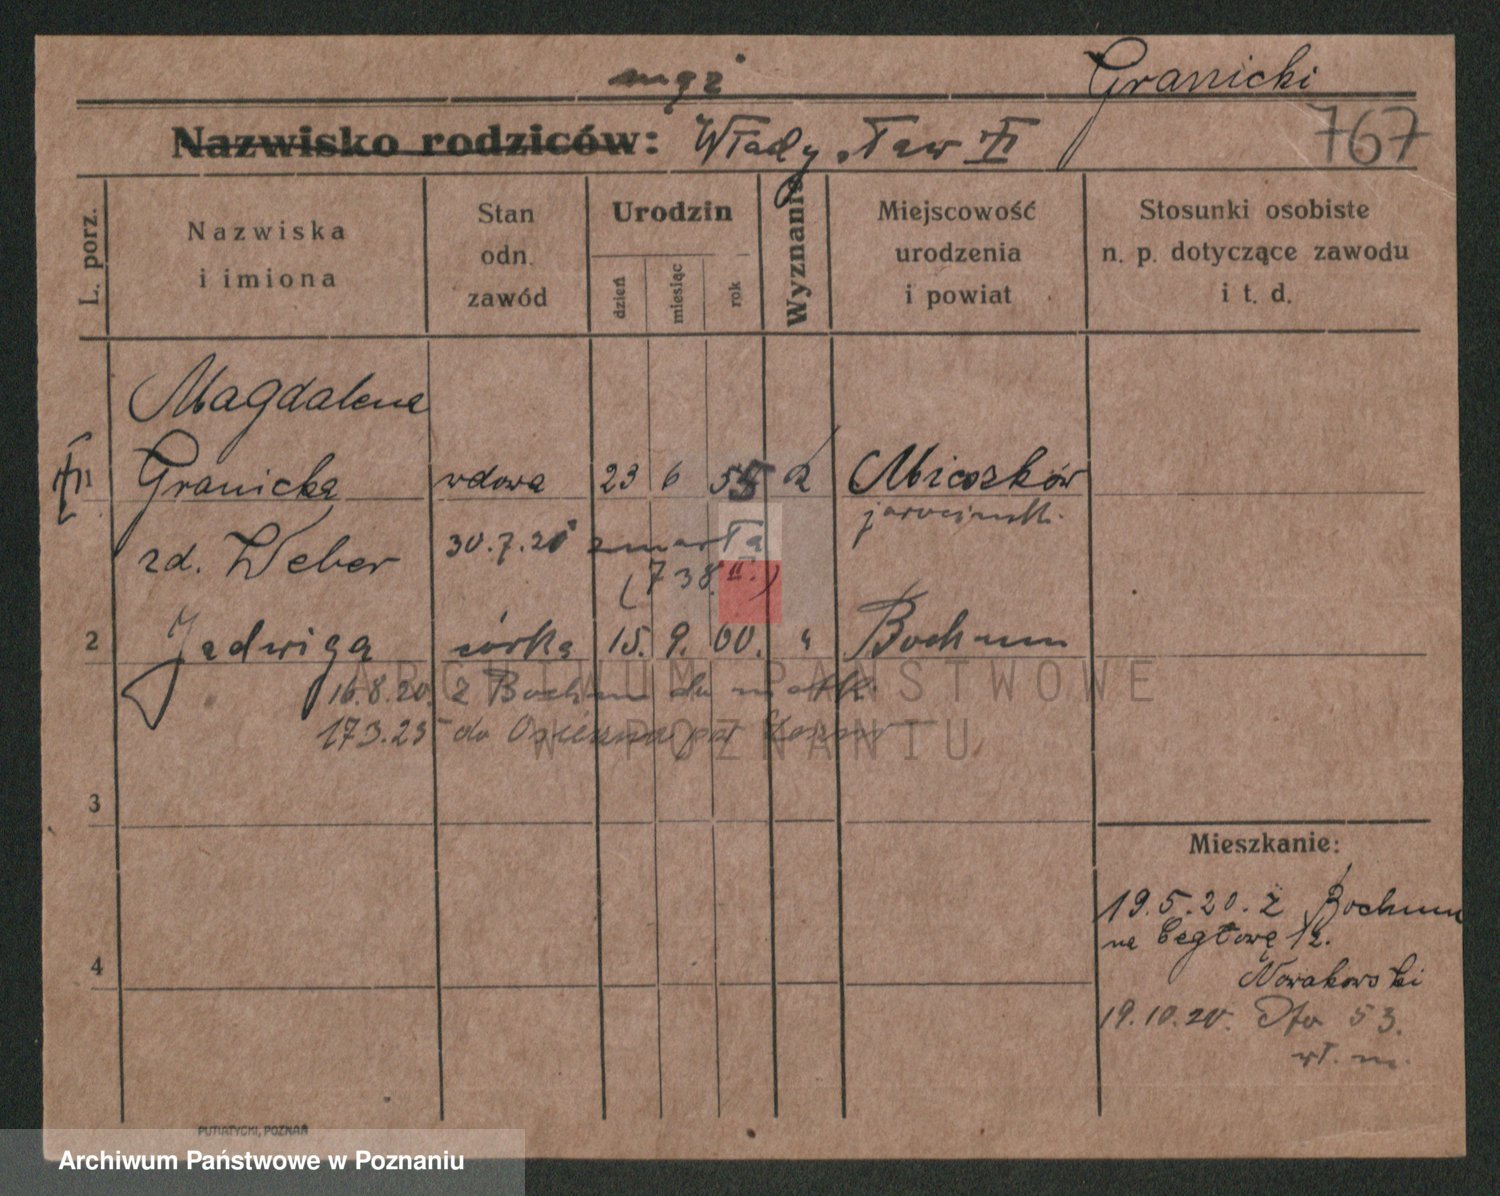 mąż
Granicki
Nazwisko rodziców: Władysław
767
L. porz.
Nazwiska
i imiona
Stan
odn.
zawód
Urodzin
dzień
miesiąc
rok
Wyznanie
Miejscowość
urodzenia
i powiat
Stosunki osobiste
n. p. dotyczące zawodu
i t. d.
Magdalena
1 Granicka wdowa 23 6 55
zd. Weber 30.7.20 zmarła
(738 II.)
2 Jadwiga córka 15. 9. 00. " Bochum
16.8.20. z Bochum do matki
do
3
4
Mieszkanie:
19.5.20. z Bochum
na 12.
Nowakowski
19.10.20. 53.
wł. m.
ARCHIWUM PAŃSTWOWE
W POZNANIU
PUTIATYCKI, POZNAŃ
Archiwum Państwowe w Poznaniu